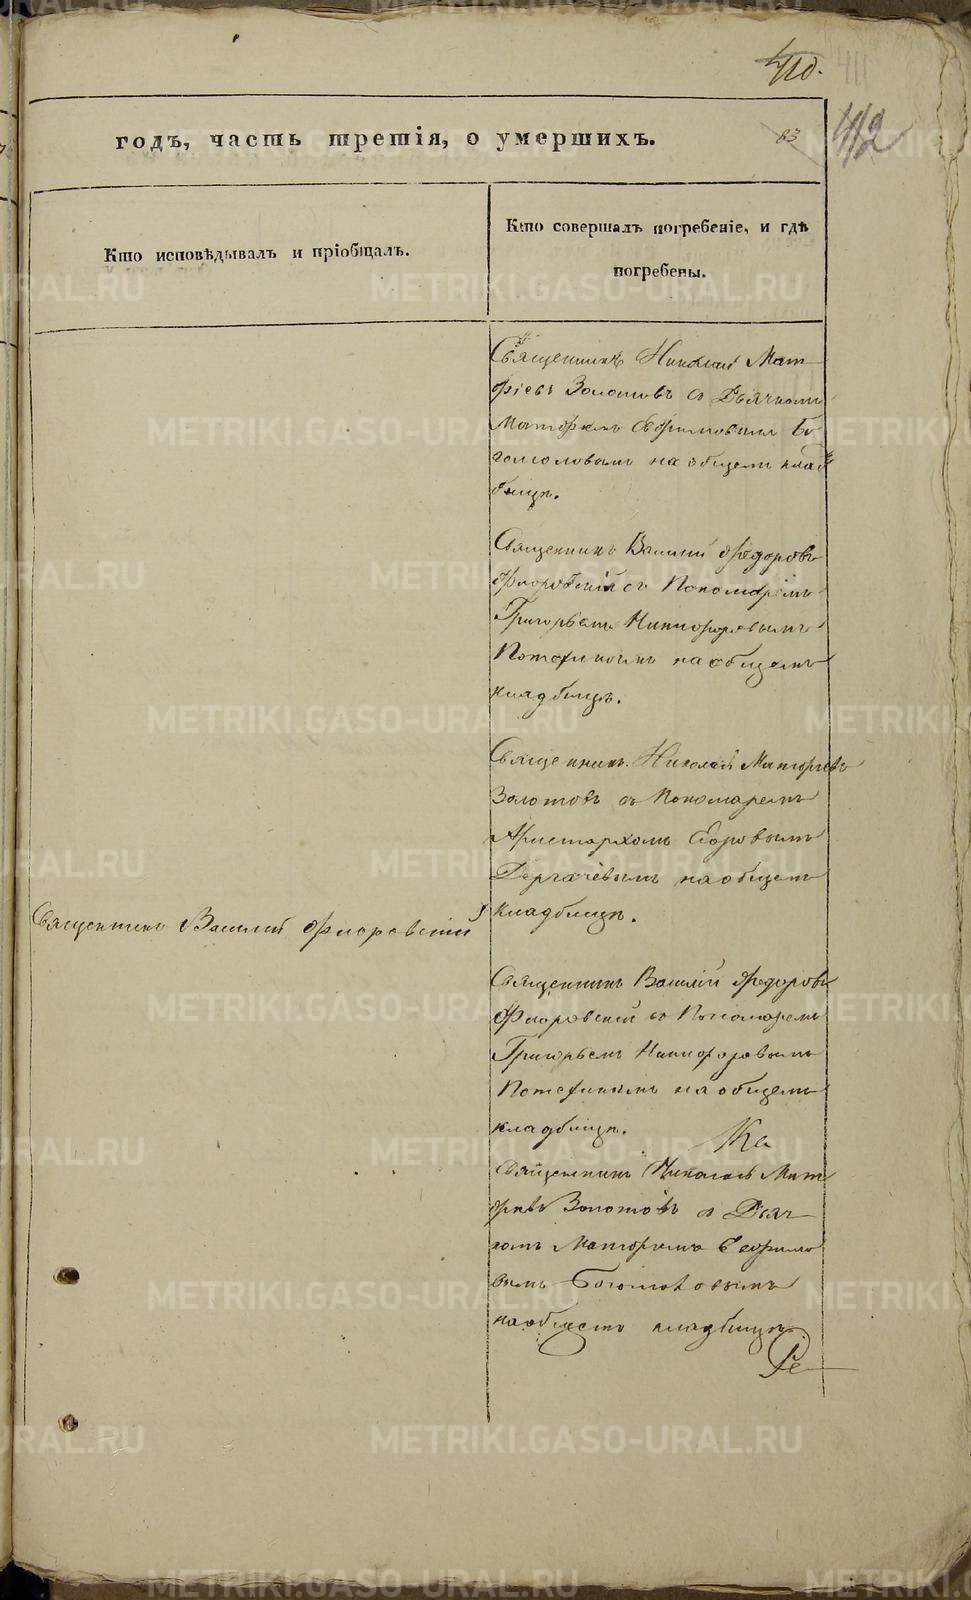 410.
411
412
83
годъ, часть третія, о умершихъ.
Кто исповѣдывалъ и пріобщалъ.
Кто совершалъ погребеніе, и гдѣ
погребены.
Священникъ Николай Мат
фіевъ Золотовъ съ Дьячкомъ
Матфеемъ Ефимовымъ Бо
гомоловымъ на общемъ клад
бищѣ.
Священникъ Василій Ѳедоровъ
Флоровскій съ Пономаремъ
Григорьемъ Никифоровымъ
Потехинымъ на общемъ
кладбищѣ.
Священникъ Николай Матфіевъ
Золотовъ съ Пономаремъ
Аристархомъ
Дергачевымъ на общемъ
кладбищѣ.
Священникъ Василій Флоровскій
Священникъ Василій Ѳедоровъ
Флоровскій съ Пономаремъ
Григорьемъ Никифоровымъ
Потехинымъ на общемъ
кладбищѣ.
Ка
Священникъ Николай Мат
фіевъ Золотовъ съ Дьяч
комъ Матфеемъ Ефимо
вымъ Богомоловымъ
на общемъ кладбищѣ.
METRIKI.GASO-URAL.RU